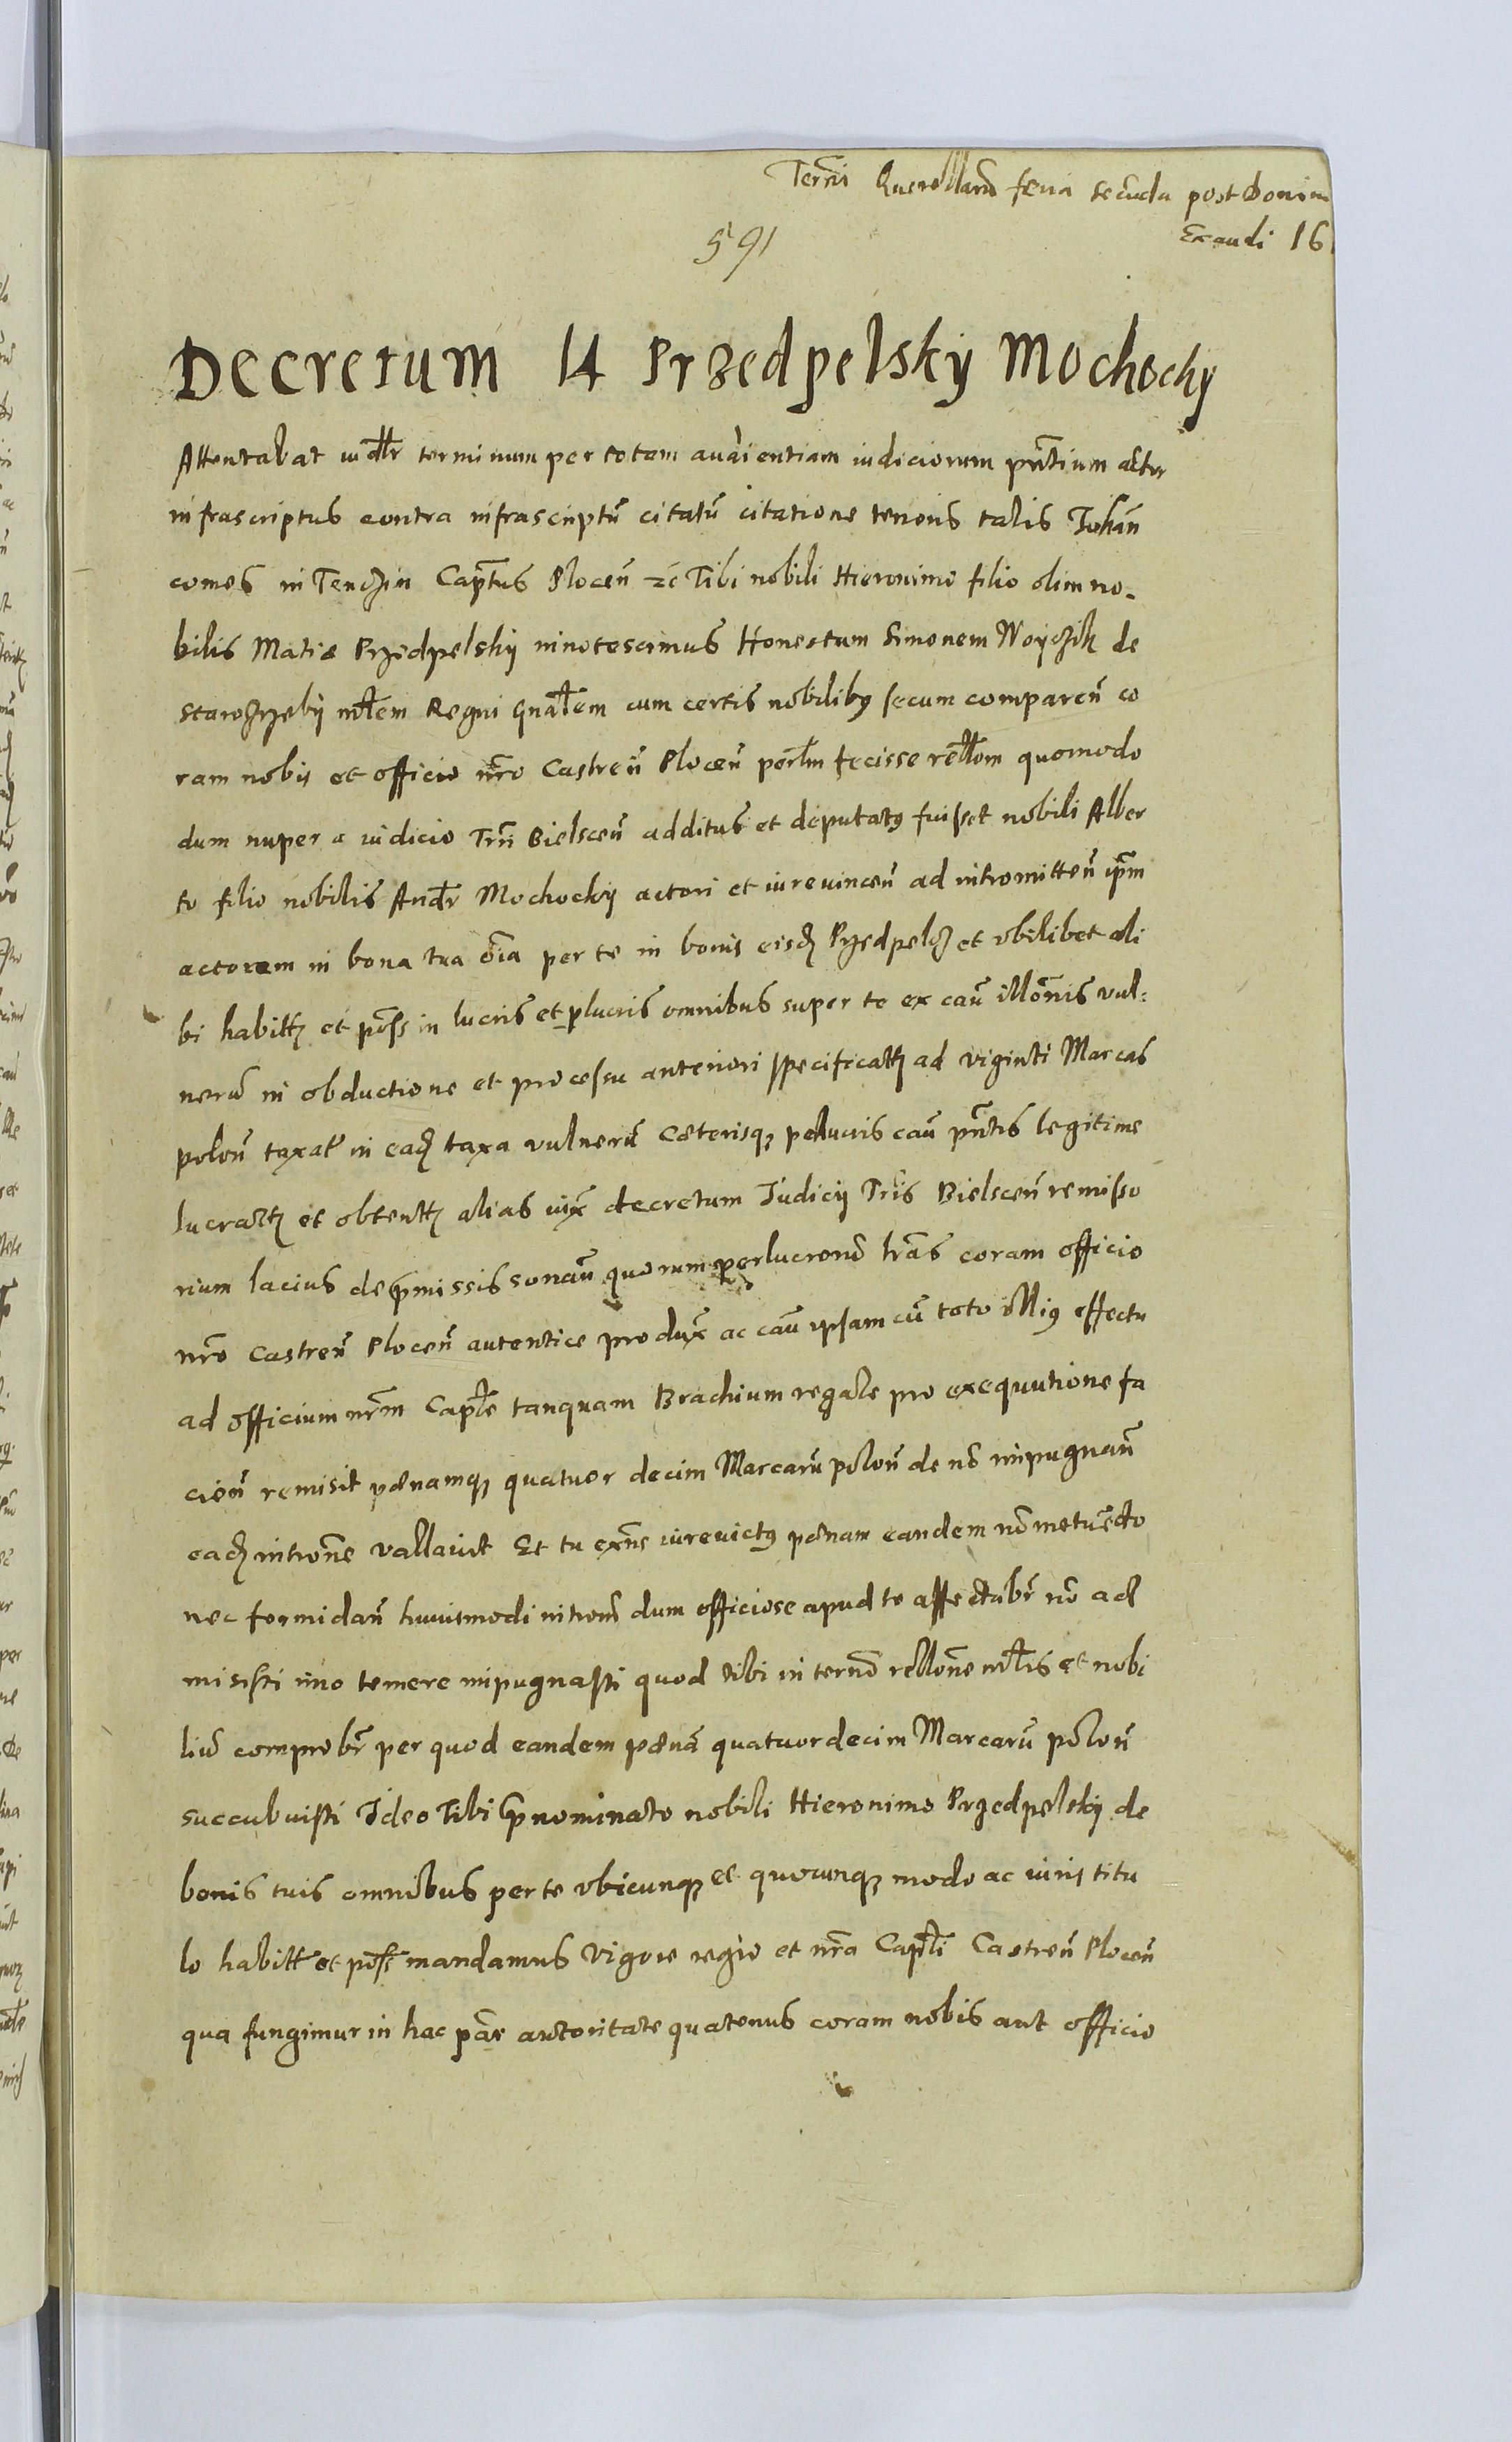 Termi Querellarũ feria secũda post Domini
Exaudi 16
591
Decretum 14 Przedpelsky Mochocky
Attentabat iudlr terminum per totam audientiam iudiciorum pñtium actor
infrascriptus contra infrascriptũ citatũ citatione tenoris talis Johañ
comes in Tenczin Captus Plocen̄ zc Tibi nobili Hieronimo filio olim no-
bilis Matiæ Przedpelskij innotescimus Honestum Simonem Woyczik de
starozrzebij mlem Regni gnalem cum certis nobilibꝰ secum comparen̄ co
ram nobis et officio nr̄o Castren̄ Plocen̄ perlm fecisse rellom quomodo
dum nuper a iudicio Trri Bielscen̄ additus et deputatꝰ fuisset nobili Alber
to filio nobilis Andr Mochockij actori et iurevincen̄ ad intromitten̄ ip̄m
actorem in bona tua oīa per te in bonis eisdꝫ Przedpelcz et ubilibet ali
bi habittꝫ et poss in lucris et plucris omnibus super te ex cau illōnis vul:
nerũ in obductione et processu anteriori specificattꝫ ad viginti Marcas
polon̄ taxat̄ in eadꝫ taxa vulnerũ cæterisqꝫ perlucris cau pñtis legitime
lucrattꝫ et obtenttꝫ alias iux decretum Judicij Trris Bielscen̄ remisso
rium lacius de p̄missis sonan̄ quorum perlucrorũ lr̄as coram officio
nr̄o Castren̄ Plocen̄ autentice produx ac cau ipsam cũ toto illiꝰ effectu
ad officium nr̄m Capīle tanquam Brachium regale pro exequutione fa
cien̄ remisit pænamqꝫ quatuor decim Marcarũ polon̄ de nõ impugnan̄
eadꝫ introne vallavit Et tu exn̄s iurevictꝰ pænam eandem nõ metuendo
nec formidan̄ huiusmodi introm̄ dum officiose apud te affectabr̄ nõ ad
misisti imo temere impugnasti quod tibi in ternō rellone mlis et nobi
liũ comprobr̄ per quod eandem pænã quatuordecim Marcarũ polon̄
succubuisti Ideo Tibi p̄nominato nobili Hieronimo Przedpelskij de
bonis tuis omnibus per te ubicunqꝫ et quocunqꝫ modo ac iuris titu
lo habitt et poss mandamus vigore regio et nr̄a Capīli Castren̄ Plocen̄
qua fungimur in hac par̄ autoritate quatenus coram nobis aut officio